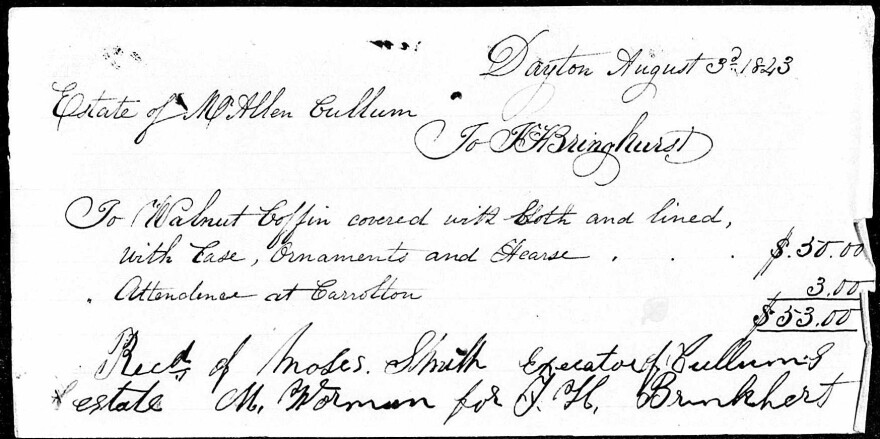 Dayton August 3d 1843
Estate of Mr Allen Cullum
To F H Bringhurst
To Walnut Coffin covered with Cloth and lined,
with Case, Ornaments and Hearse . . . $.50.00
Attendence at Carrolton 3.00
$53.00
Recd of Moses. Smith Execator of Cullums
estate M. Worman for F. H. Brinkhert